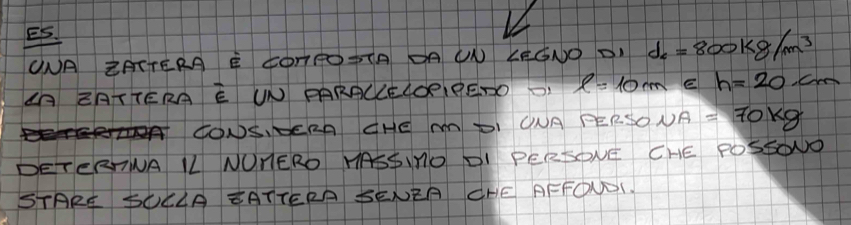 ES.
UNA ZATTERA È COMPOSTA DA UN LEGNO DI dₗ = 800 kg/m³
LA ZATTERA È UN PARALLELOPIPEDO DI l = 10 m E h = 20 cm
CONSIDERA CHE m DI UNA PERSONA = 70 kg
DETERMINA IL NUMERO MASSIMO DI PERSONE CHE POSSONO
STARE SULLA ZATTERA SENZA CHE AFFONDI.